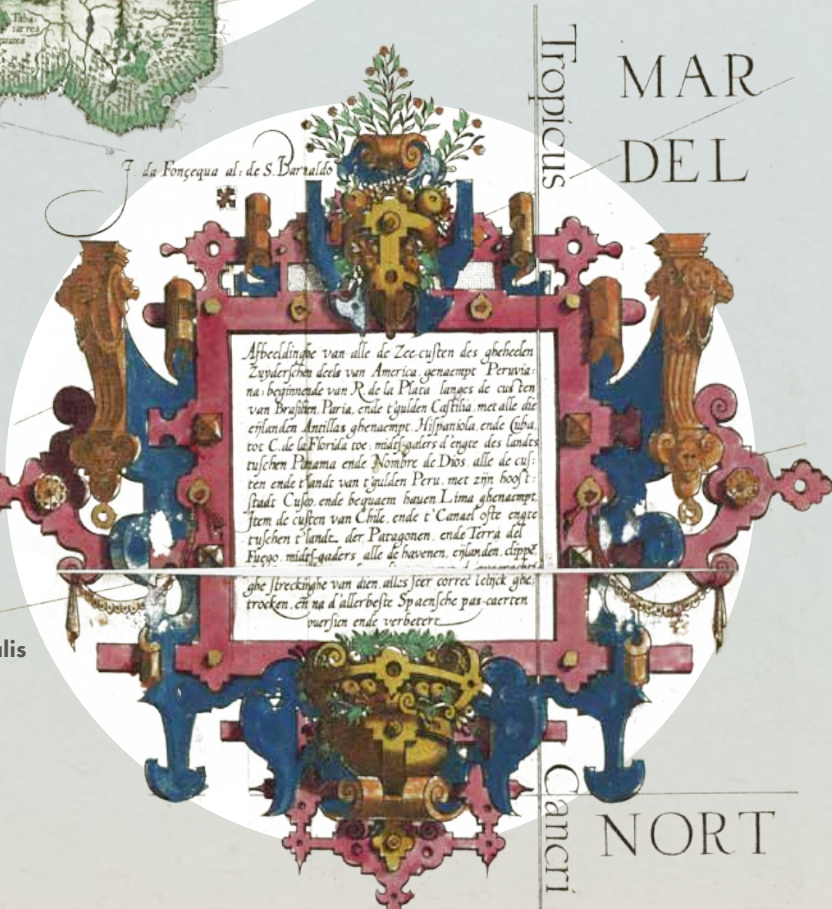 Taba
iarrea
MAR
DEL
Tropicus
J. da Fonçequa al: de S. Barnaldo
Afbeeldinghe van alle de Zee-custen des gheheelen
Zuyderschen deels van America, genaempt Peruvia:
na: beginnende van R. de la Plata langes de custen
van Brasilien, Paria, ende t'gulden Castilia, met alle die
eijlanden Antillas ghenaempt, Hispaniola, ende Cuba,
tot C. de la Florida toe: midts-gaders d'engte des landts
tusschen Panama ende Nombre de Dios, alle de cus:
ten ende t'landt van t'gulden Peru, met zijn hooft:
stadt Cusco, ende bequaem hauen Lima ghenaempt
Item de custen van Chile, ende t'Canael ofte engte
tusschen t'lande der Patagonen, ende Terra del
Fuego, midts-gaders alle de havenen, eijlanden, clippe,
ghe streckinghe van dien, alles seer correctelijck ghe:
trocken, en na d'allerbeste Spaensche pas-caerten
oversien ende verbetert
alis
Cancri
NORT